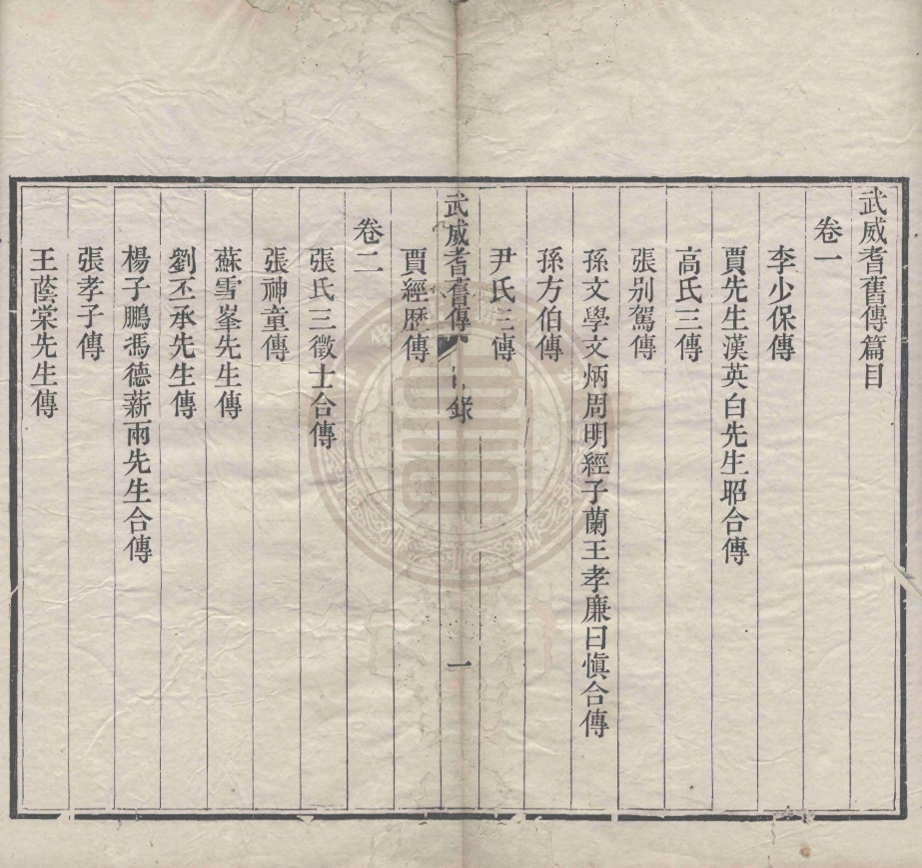 武威耆舊傳篇目
卷一
李少保傳
賈先生漢英白先生昭合傳
高氏三傳
張別駕傳
孫文學文炳周明經子蘭王孝廉曰愼合傳
孫方伯傳
尹氏三傳
武威耆舊傳 錄 一
賈經歷傳
卷二
張氏三徵士合傳
張神童傳
蘇雪峯先生傳
劉丕承先生傳
楊子鵬馮德薪兩先生合傳
張孝子傳
王蔭棠先生傳